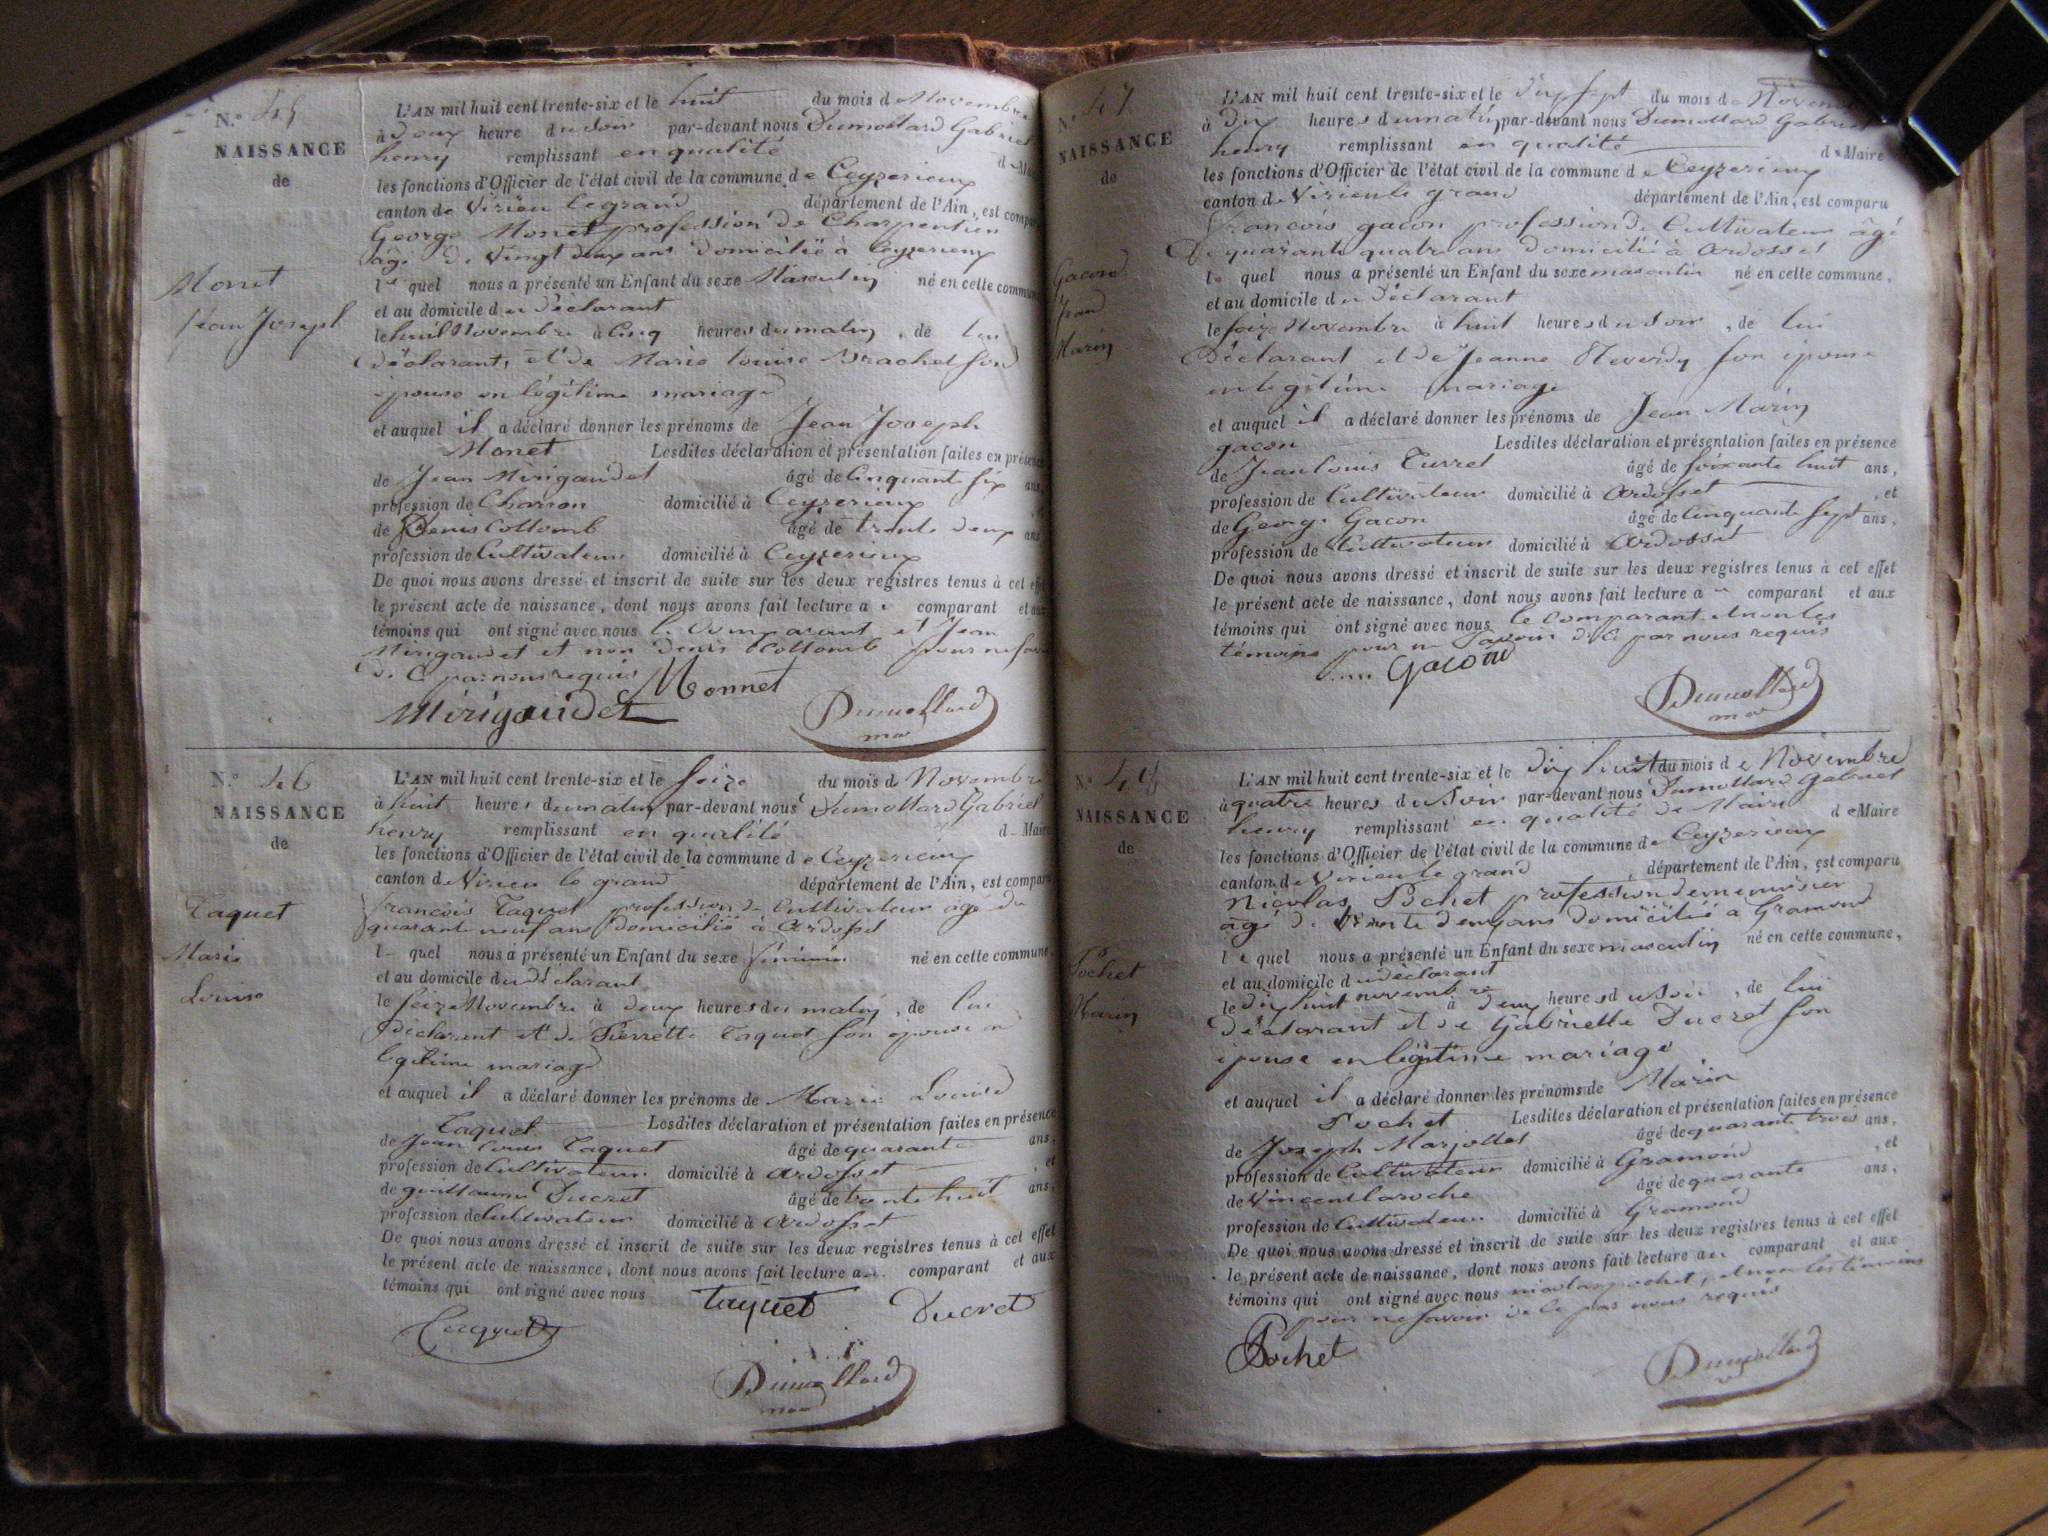 N.º 45
NAISSANCE
de
Monet
Jean Joseph
L'AN mil huit cent trente-six et le huit du mois de Novembre
à deux heure du soir par-devant nous Dumollard Gabriel
henry remplissant en qualité de Maire
les fonctions d'Officier de l'état civil de la commune de Ceyzerieux
canton de Virieu le grand département de l'Ain, est comparu
George Monet profession de Charpentier
âgé de vingt deux ans domicilié à Ceyzerieux
le quel nous a présenté un Enfant du sexe Masculin né en cette commune
et au domicile du déclarant
le huit Novembre à Cinq heures du matin, de lui
déclarant, et de Marie Louise Brachet son
épouse en légitime mariage
et auquel il a déclaré donner les prénoms de Jean Joseph
Monet Lesdites déclaration et présentation faites en présence
de Jean Mirigaudet âgé de Cinquante six ans,
profession de Charron domicilié à Ceyzerieux, et
de Denis Collomb âgé de trente deux ans
profession de Cultivateur domicilié à Ceyzerieux
De quoi nous avons dressé et inscrit de suite sur les deux registres tenus à cet effet
le présent acte de naissance, dont nous avons fait lecture a comparant et aux
témoins qui ont signé avec nous le Comparant et Jean
Mirigaudet et non Denis Collomb pour ne savoir
de C par nous requis
Monnet
Mirigaudet
Dumollard
N.º 46
NAISSANCE
de
Taquet
Marie
Louise
L'AN mil huit cent trente-six et le seize du mois de Novembre
à huit heures du matin par-devant nous Dumollard Gabriel
henry remplissant en qualité d Maire
les fonctions d'Officier de l'état civil de la commune de Ceyzerieux
canton de Virieu le grand département de l'Ain, est comparu
françois Taquet profession de Cultivateur âgé de
quarante neuf ans domicilié à Ardosset
l quel nous a présenté un Enfant du sexe féminin né en cette commune,
et au domicile du déclarant
le seize Novembre à deux heures du matin, de lui
déclarant et de Pierrette Taquet son épouse en
légitime mariage
et auquel il a déclaré donner les prénoms de Marie Louise
Taquet Lesdites déclaration et présentation faites en présence
de Jean Louis Taquet âgé de quarante ans,
profession de Cultivateur domicilié à Ardosset, et
de guillaume Ducret âgé de trente huit ans,
profession de Cultivateur domicilié à Ardosset
De quoi nous avons dressé et inscrit de suite sur les deux registres tenus à cet effet
le présent acte de naissance, dont nous avons fait lecture a comparant et aux
témoins qui ont signé avec nous
taquet Ducret
Dumollard
N.º 47
NAISSANCE
de
Gacon
Jean
Marin
L'AN mil huit cent trente-six et le dix sept du mois de Novembre
à dix heures du matin par-devant nous Dumollard Gabriel
henry remplissant en qualité de Maire
les fonctions d'Officier de l'état civil de la commune de Ceyzerieux
canton de Virieu le grand département de l'Ain, est comparu
françois gacon profession de Cultivateur âgé
de quarante quatre ans domicilié à Ardosset
le quel nous a présenté un Enfant du sexe masculin né en cette commune,
et au domicile du déclarant
le seize Novembre à huit heures du soir, de lui
déclarant et de Jeanne son épouse
en légitime mariage
et auquel il a déclaré donner les prénoms de Jean Marin
gacon Lesdites déclaration et présentation faites en présence
de Jean Louis Turret âgé de soixante huit ans,
profession de Cultivateur domicilié à Ardosset, et
de George Gacon âgé de Cinquante sept ans,
profession de Cultivateur domicilié à Ardosset
De quoi nous avons dressé et inscrit de suite sur les deux registres tenus à cet effet
le présent acte de naissance, dont nous avons fait lecture à comparant et aux
témoins qui ont signé avec nous le Comparant et non les
témoins pour ne savoir de C par nous requis
Gacon
Dumollard
N.º 48
NAISSANCE
de
Pochet
Marin
L'AN mil huit cent trente-six et le dix huit du mois de Novembre
à quatre heures du soir par-devant nous Dumollard Gabriel
henry remplissant en qualité de Maire de Maire
les fonctions d'Officier de l'état civil de la commune de Ceyzerieux
canton de Virieu le grand, département de l'Ain, est comparu
Nicolas Pochet profession de menuisier
âgé de trente deux ans domicilié à Gramond
le quel nous a présenté un Enfant du sexe masculin né en cette commune,
et au domicile du déclarant
le dix huit novembre à deux heures du soir, de lui
déclarant et de Gabrielle Ducret son
épouse en légitime mariage
et auquel il a déclaré donner les prénoms de Marin
Pochet Lesdites déclaration et présentation faites en présence
de Joseph Marjollet âgé de quarante trois ans,
profession de Cultivateur domicilié à Gramond, et
de Vincent laroche âgé de quarante ans,
profession de Cultivateur domicilié à Gramond
De quoi nous avons dressé et inscrit de suite sur les deux registres tenus à cet effet
le présent acte de naissance, dont nous avons fait lecture au comparant et aux
témoins qui ont signé avec nous nicolas pochet, et non les témoins
pour ne savoir de le par nous requis
Pochet
Dumollard